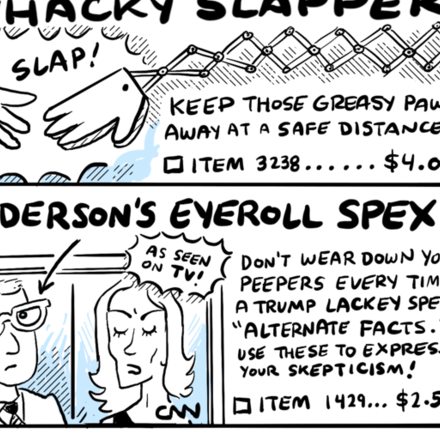 HACKY SLAPPER
SLAP!
KEEP THOSE GREASY PAW
AWAY AT A SAFE DISTANCE
ITEM 3238...... $4.0
DERSON'S EYEROLL SPEX
AS SEEN
ON TV!
DON'T WEAR DOWN YO
PEEPERS EVERY TIM
A TRUMP LACKEY SPE
"ALTERNATE FACTS.
USE THESE TO EXPRES
YOUR SKEPTICISM!
ITEM 1429... $2.5
CNN